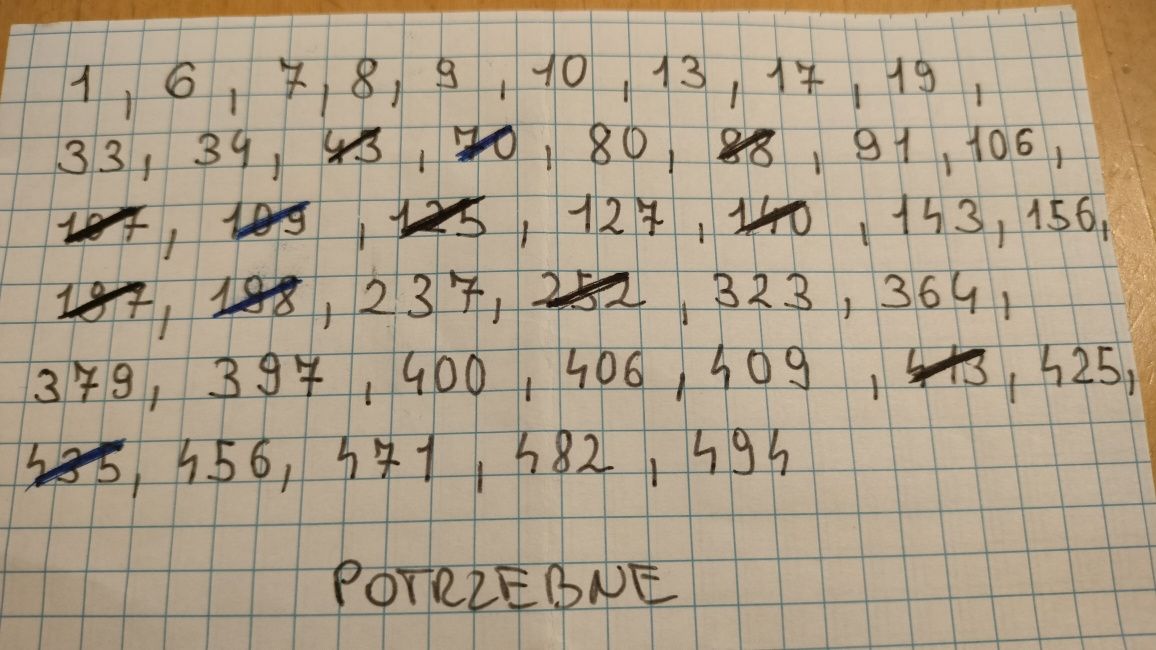 1, 6, 7, 8, 9, 10, 13, 17, 19,
33, 34, 43, 70, 80, 88, 91, 106,
107, 109, 125, 127, 140, 143, 156,
197, 198, 237, 252, 323, 364,
379, 397, 400, 406, 409, 413, 425,
435, 456, 471, 482, 494
POTRZEBNE